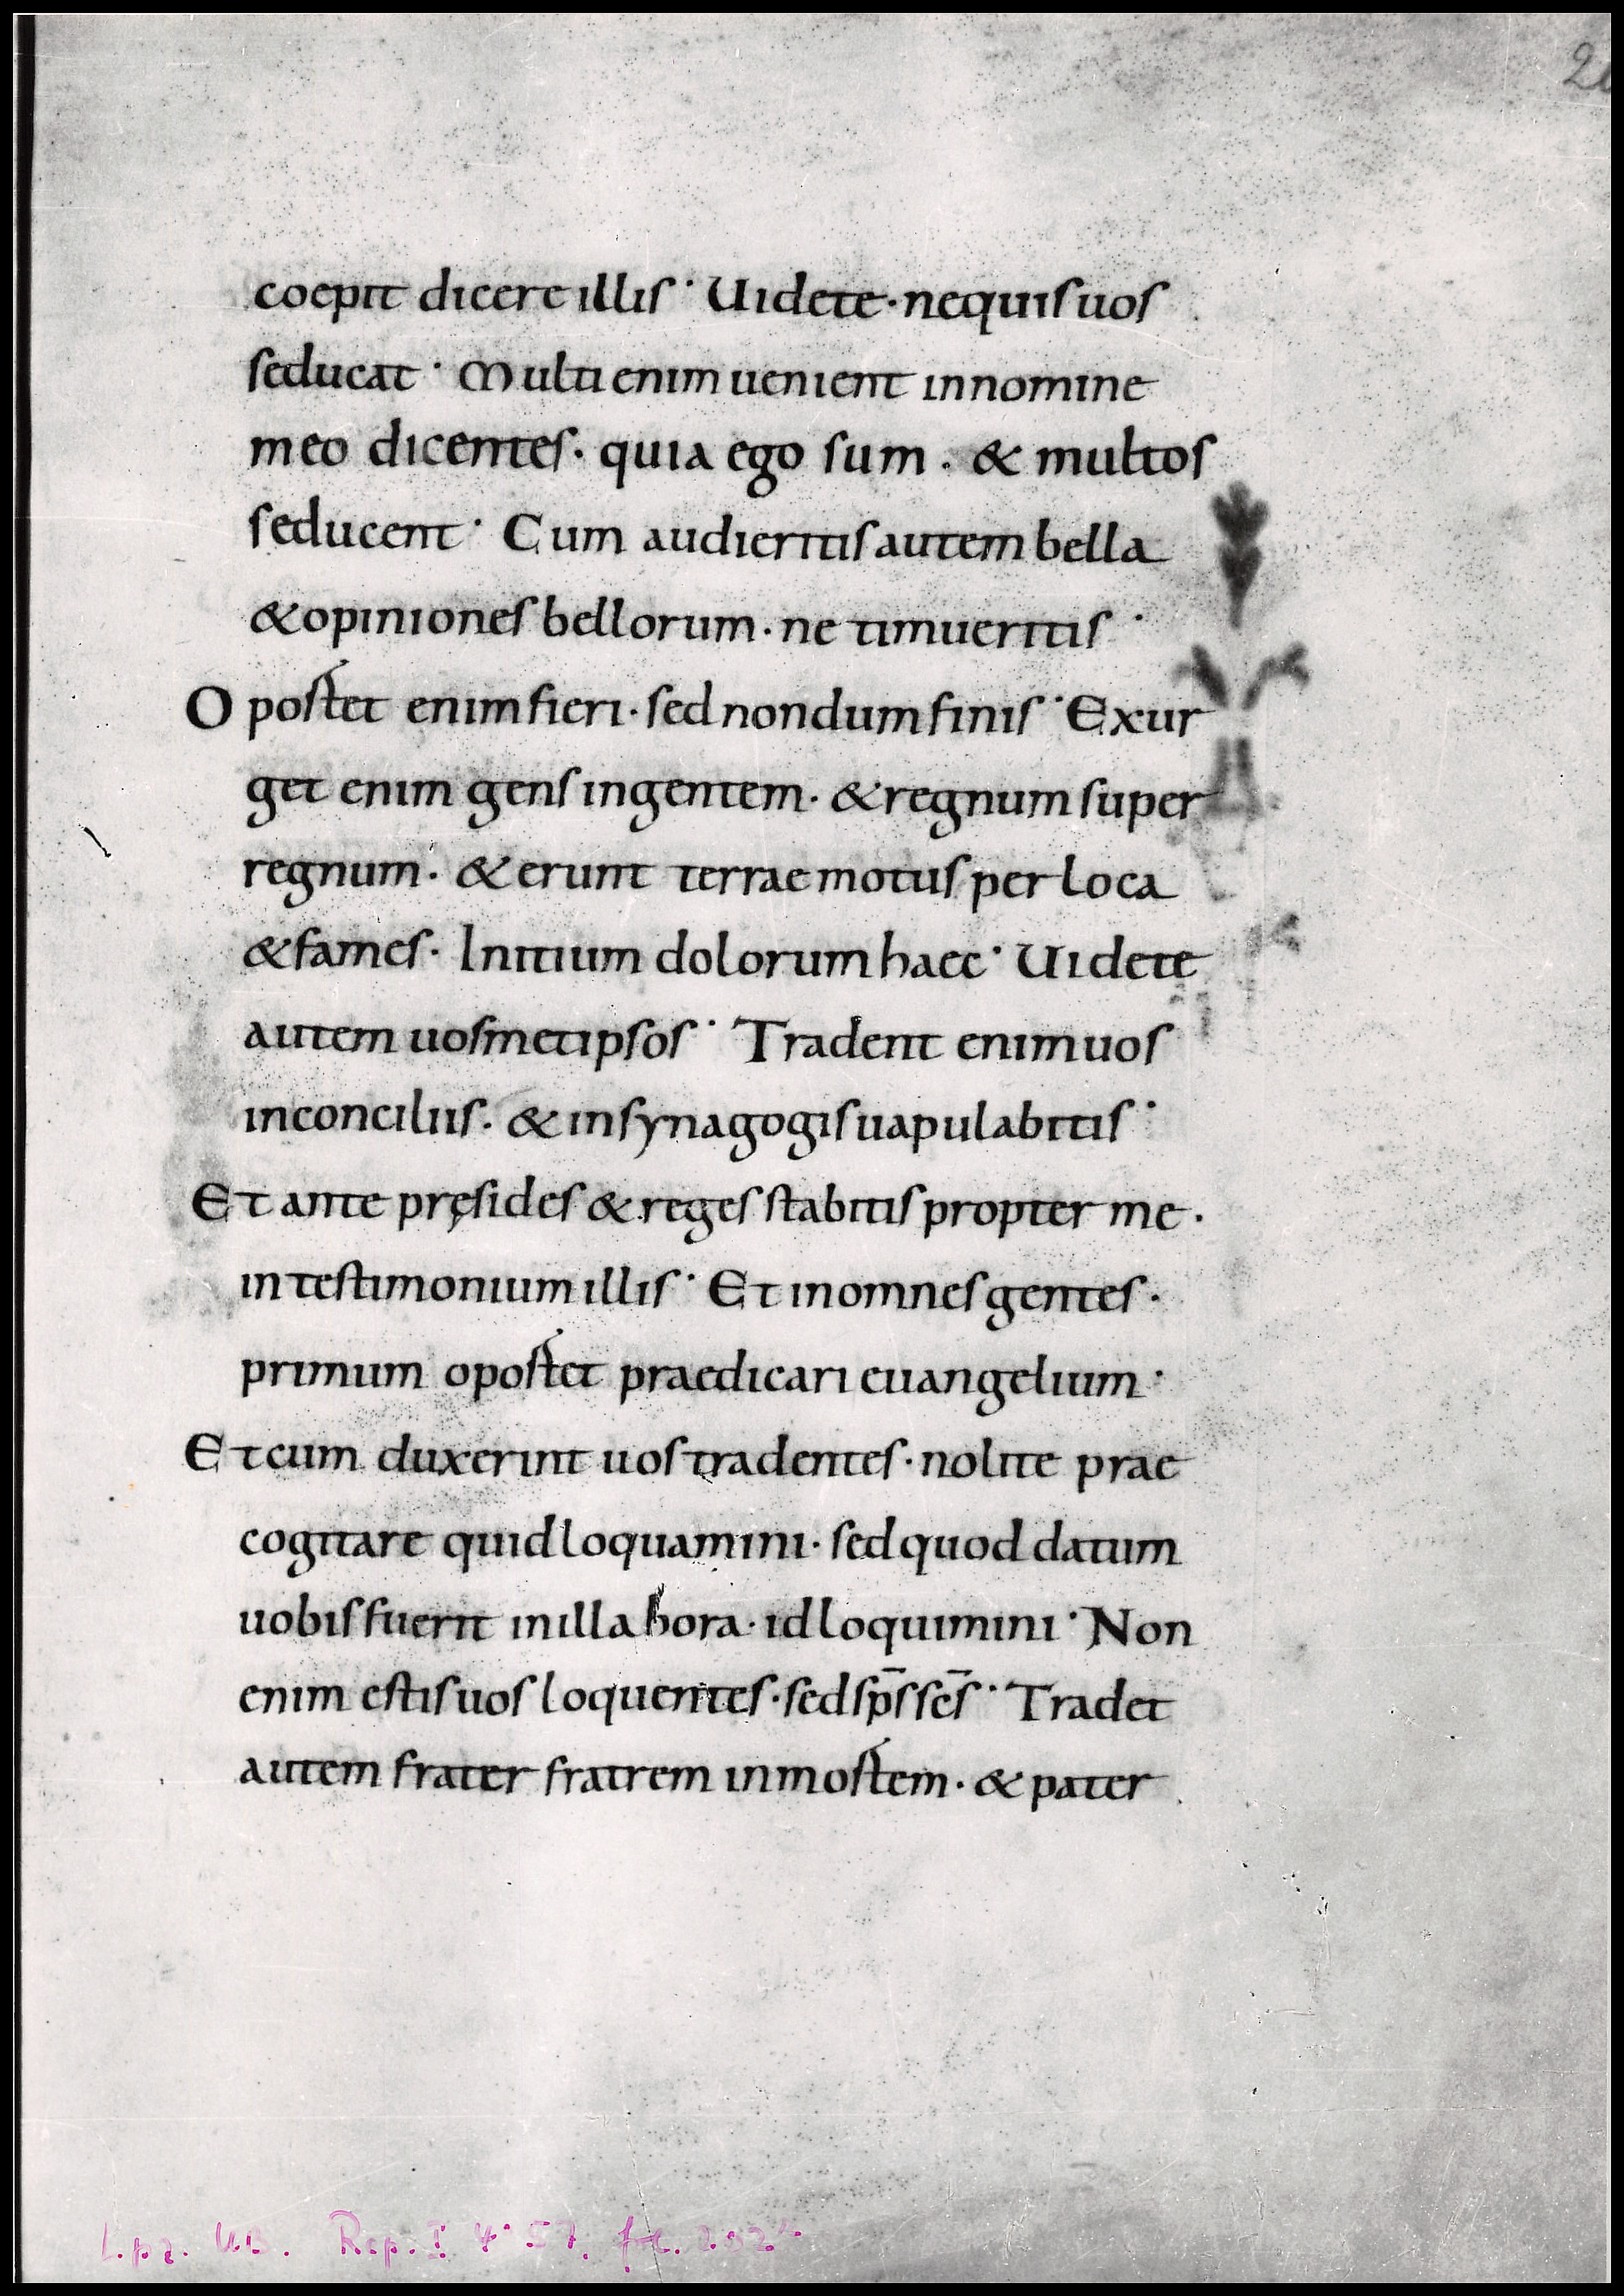 coepit dicere illis· Uidete· nequis uos
seducat· Multi enim uenient innomine
meo dicentes· quia ego sum· & multos
seducent· Cum audieritis autem bella
& opiniones bellorum· ne timueritis·
Oportet enim fieri· sed nondum finis· Exur
get enim gens ingentem· & regnum super
regnum· & erunt terrae motus per loca
& fames· Initium dolorum haec· Uidete
autem uosmetipsos· Tradent enim uos
inconciliis· & insynagogis uapulabitis·
Et ante pręsides & reges stabitis propter me·
in testimonium illis· Et inomnes gentes·
primum oportet praedicari euangelium·
Et cum duxerint uos tradentes· nolite prae
cogitare quid loquamini· sed quod datum
uobis fuerit in illa hora· id loquimini· Non
enim estis uos loquentes· sed sp̄s sc̄s· Tradet
autem frater fratrem inmortem· & pater
Lpz. UB. Rep. I 4° 57,